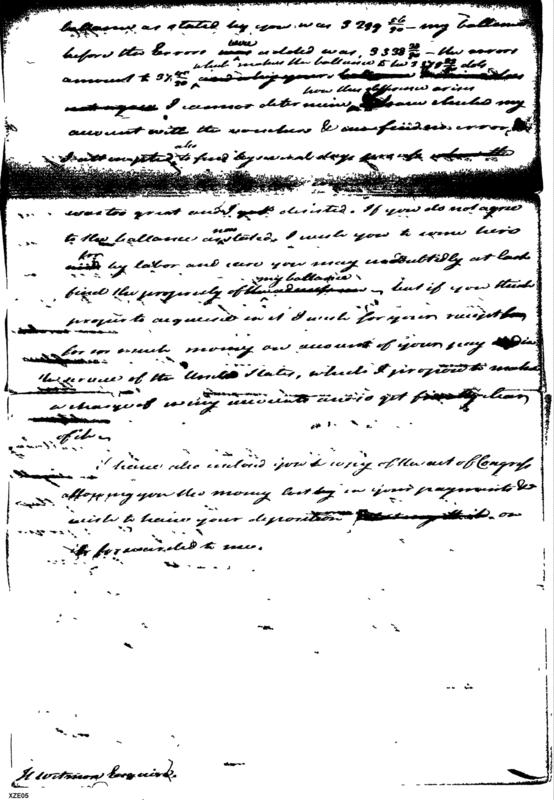 ballance as stated by you was 3299 56/90 — my ballance
before the Errors were added was, 3338 — the errors
amount to 37 which makes the ballance to be dols
how this difference arises
I cannot determine, I have checked my
account with the vouchers & find no error,
I attempted also to find by several days
was too great and I desisted. If you do not agree
to the ballance now stated, I wish you to come here
for by labor and care you may undoubtedly at last
find the propriety of my ballance, but if you think
proper to acquiesce in it I wish for your receipt
for so much money on account of your pay in
the service of the United States, which I propose to make
a charge of in my accounts and so get clear
of it.
I have also inclosed you a copy of the act of Congress
allowing you the money lost by in your payments &
wish to have your deposition on
it forwarded to me.
Esquire.
XZE05